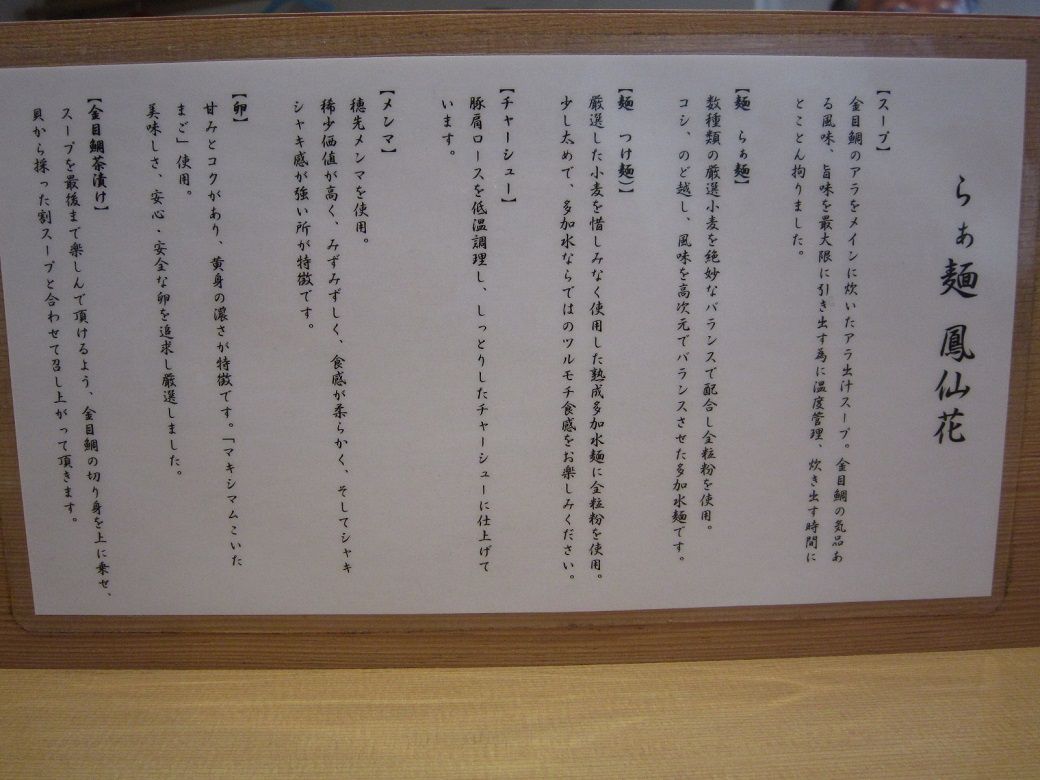 らぁ麺 鳳仙花
【スープ】
金目鯛のアラをメインに炊いたアラ出汁スープ。金目鯛の気品あ
る風味、旨味を最大限に引き出す為に温度管理、炊き出す時間に
とことん拘りました。
【麺 らぁ麺】
数種類の厳選小麦を絶妙なバランスで配合し全粒粉を使用。
コシ、のど越し、風味を高次元でバランスさせた多加水麺です。
【麺 つけ麺)】
厳選した小麦を惜しみなく使用した熟成多加水麺に全粒粉を使用。
少し太めで、多加水ならではのツルモチ食感をお楽しみください。
【チャーシュー】
豚肩ロースを低温調理し、しっとりしたチャーシューに仕上げて
います。
【メンマ】
穂先メンマを使用。
稀少価値が高く、みずみずしく、食感が柔らかく、そしてシャキ
シャキ感が強い所が特徴です。
【卵】
甘みとコクがあり、黄身の濃さが特徴です。「マキシマムこいた
まご」使用。
美味しさ、安心・安全な卵を追求し厳選しました。
【金目鯛茶漬け】
スープを最後まで楽しんで頂けるよう、金目鯛の切り身を上に乗せ、
貝から採った割スープと合わせて召し上がって頂きます。